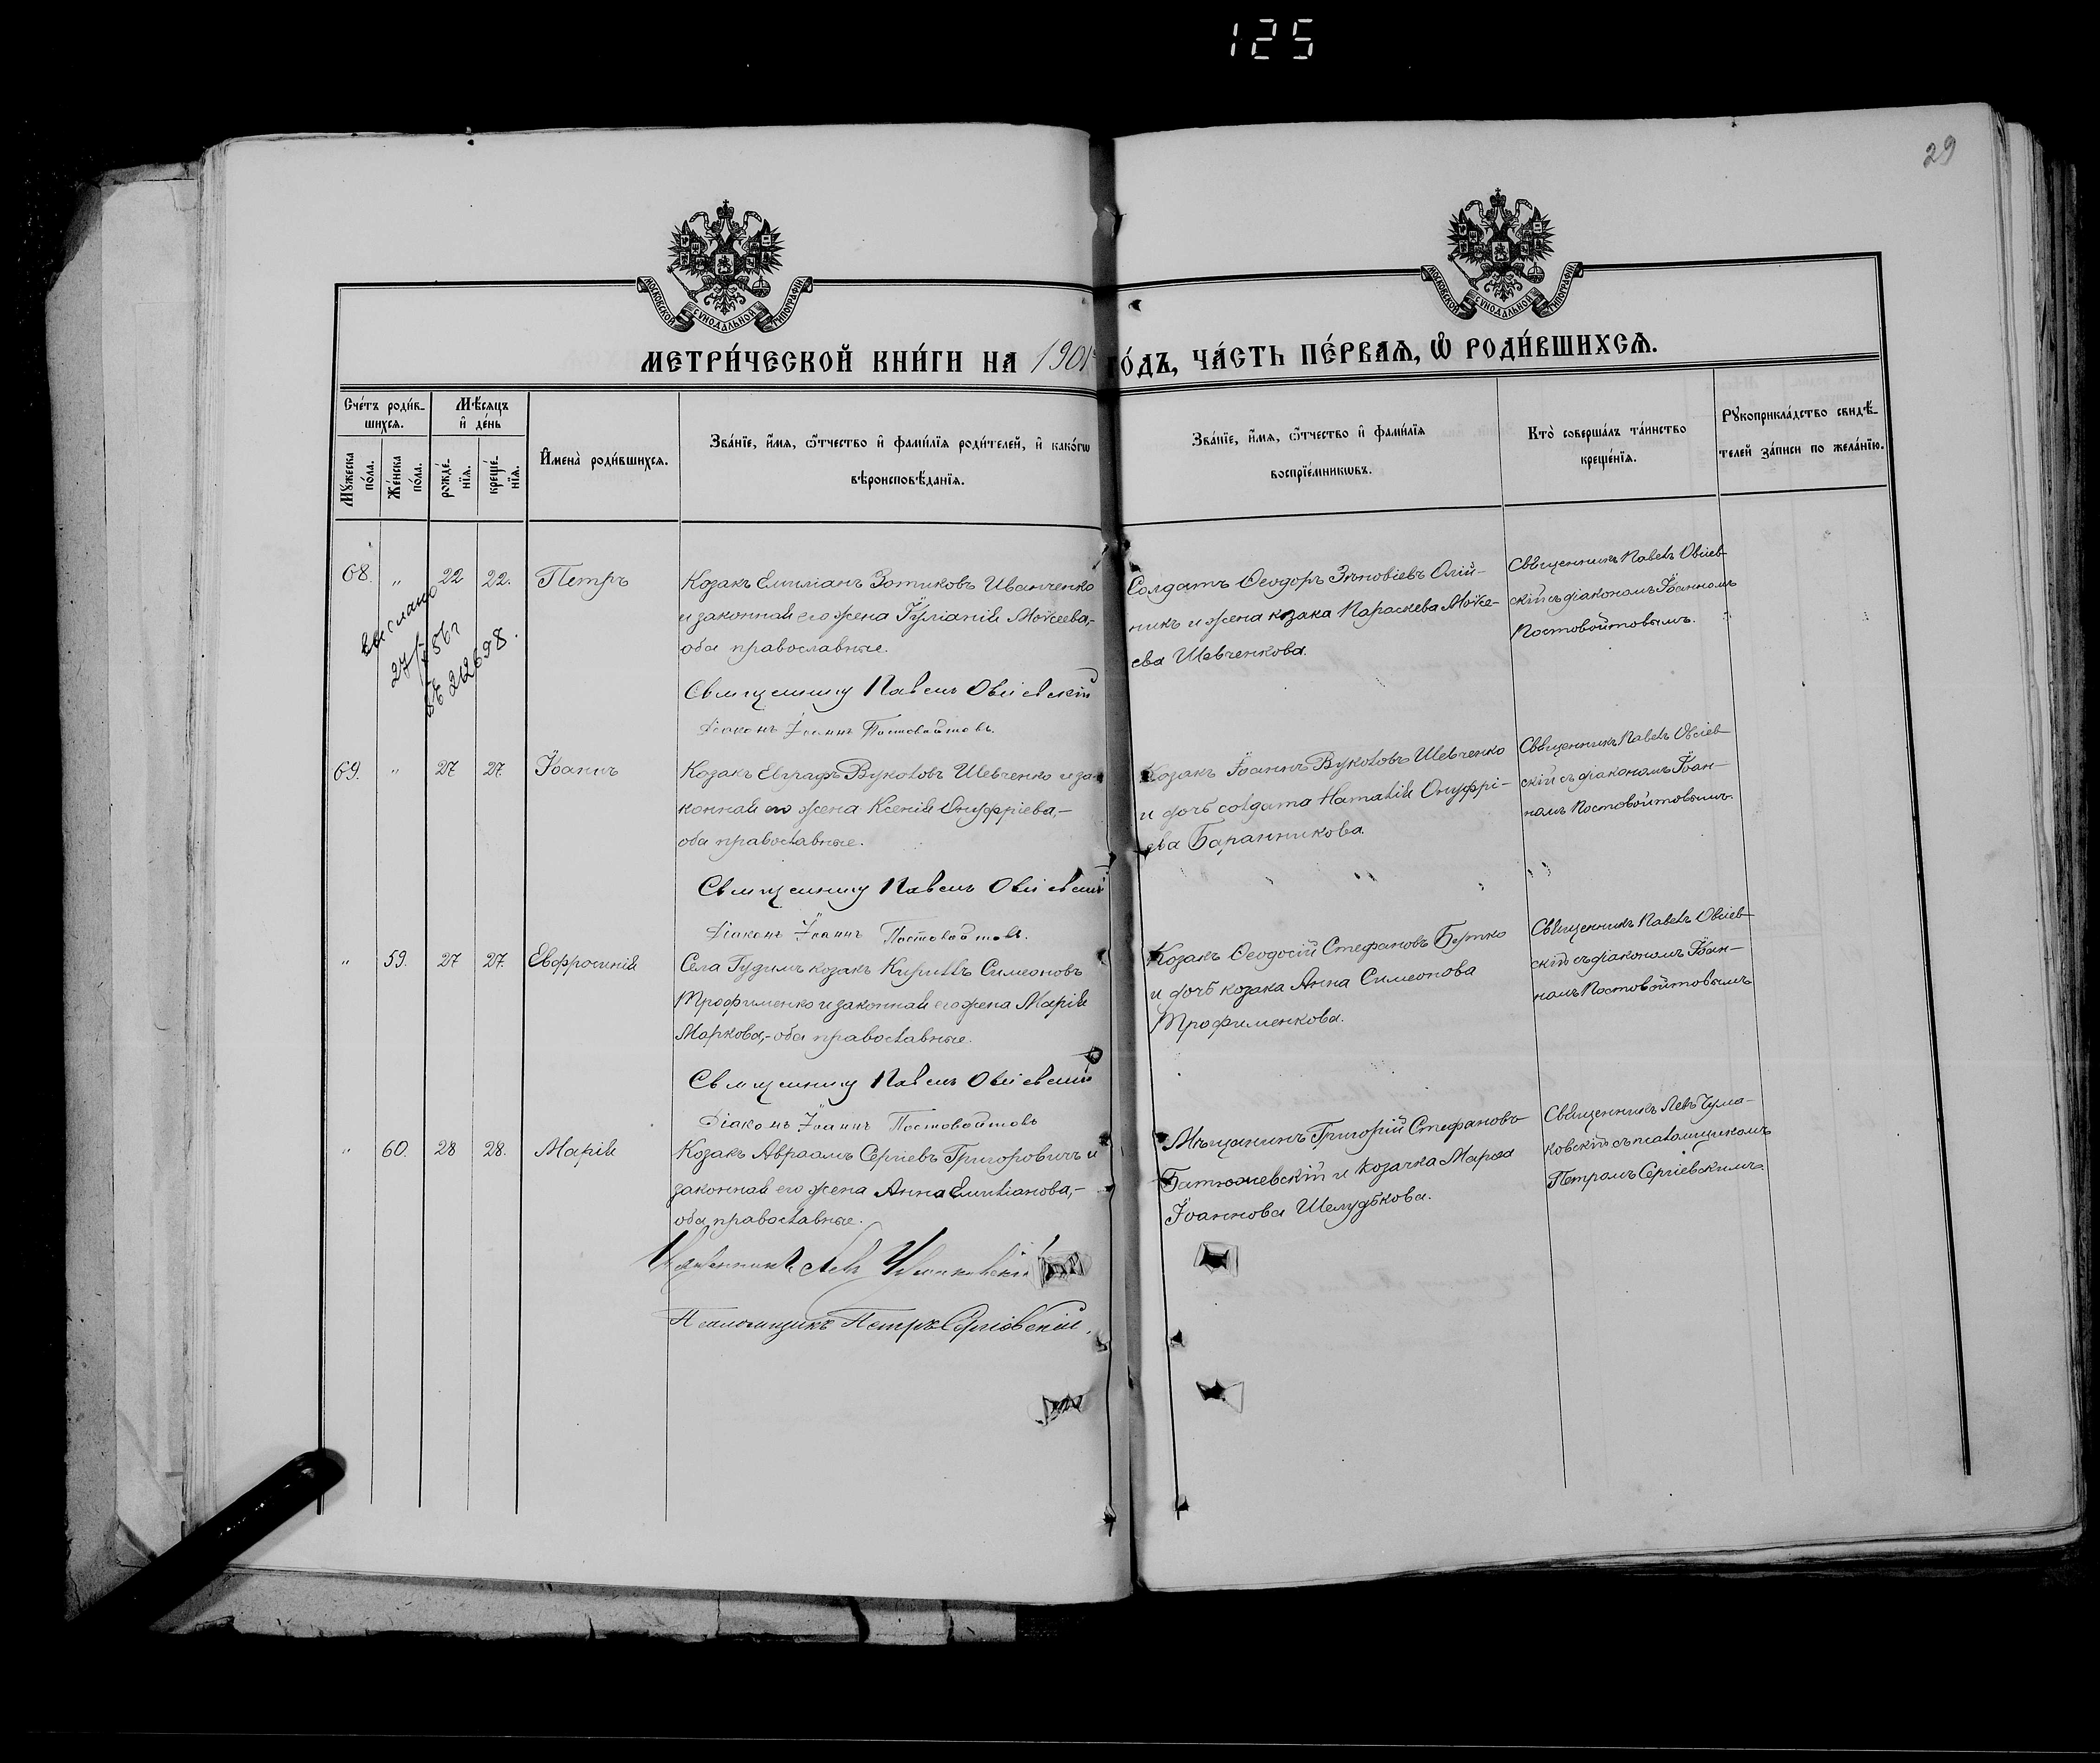 125
29
МОСКОВСКОЙ СѴНОДАЛЬНОЙ ТИПОГРАФІИ
МОСКОВСКОЙ СѴНОДАЛЬНОЙ ТИПОГРАФІИ
МЕТРИ́ЧЕСКОЙ КНИ́ГИ НА 1901 ГО́ДЪ, ЧА́СТЬ ПЕ́РВАѦ, Ѽ РОДИ́ВШИХСѦ.
Сче́тъ роди́в-
шихсѧ.
Мꙋ́жеска по́ла.
Же́нска по́ла.
Мѣ́сѧцъ
и҆ де́нь
рожде́-
нїѧ.
креще́-
нїѧ.
И҆мена̀ роди́вшихсѧ.
Зва́нїе, и҆́мѧ, ѻ҆́тчество и҆ фами́лїѧ роди́телей, и҆ како́гѡ
вѣроисповѣ́данїѧ.
Зва́нїе, и҆́мѧ, ѻ҆́тчество и҆ фами́лїѧ
воспрїе́мникѡвъ.
Кто̀ соверша́лъ та́инство
креще́нїѧ.
Рꙋкоприкла́дство свидѣ́-
телей за́писи по жела́нїю.
68. " 22 22. Петръ
Козакъ Емиліанъ Зотиковъ Иванченко
и законная его жена Іуліанія Моѵсеева,-
оба православные.
Священникъ Павелъ Овсіевскій
Діаконъ Іоаннъ Постовойтовъ.
Солдатъ Ѳеодоръ Зѣновіевъ Олій-
никъ и жена козака Параскева Моѵсе-
ева Шевченкова.
Священникъ Павелъ Овсіев-
скій съ діакономъ Іоанномъ
Постовойтовымъ.
выслано
27/
56г
212698.
69. " 27 27. Іоаннъ
Козакъ Евграфъ Вуколовъ Шевченко и за-
конная его жена Ксенія Онуфріева,-
оба православные.
Священникъ Павелъ Овсіевскій
Діаконъ Іоаннъ Постовойтовъ.
Козакъ Іоаннъ Вуколовъ Шевченко
и дочь солдата Наталія Онуфрі-
ева Баранникова.
Священникъ Павелъ Овсіев-
скій съ діакономъ Іоан-
номъ Постовойтовымъ.
" 59. 27 27. Евфросинія
Села Гудимъ козакъ Кириллъ Симеоновъ
Трофименко и законная его жена Марія
Маркова,- оба православные.
Священникъ Павелъ Овсіевскій
Діаконъ Іоаннъ Постовойтовъ
Козакъ Ѳеодосій Стефановъ Бутко
и дочь козака Анна Симеонова
Трофименкова.
Священникъ Павелъ Овсіев-
скій съ діакономъ Іоан-
номъ Постовойтовымъ
" 60. 28 28. Марія
Козакъ Авраамъ Сергіевъ Григоровичъ и
законная его жена Анна Емиліанова,-
оба православные.
Священникъ Левъ Чумаковскій
Псаломщикъ Петръ Сергіевскій.
Мѣщанинъ Григорій Стефановъ
и козачка Марѳа
Іоаннова Шелудькова.
Священникъ Левъ Чума-
ковскій съ псаломщикомъ
Петромъ Сергіевскимъ.